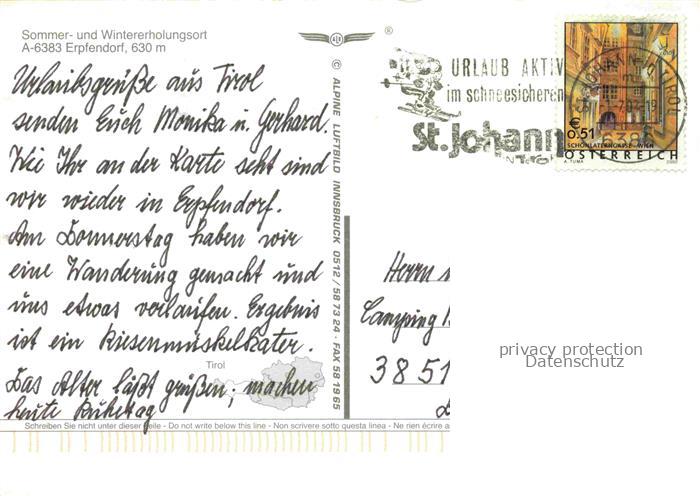 Sommer- und Wintererholungsort
A-6383 Erpfendorf, 630 m
Urlaubsgrüße aus Tirol
senden Euch Monika u. Gerhard.
Wie Ihr an der Karte seht sind
wir wieder in Erpfendorf.
Am Donnerstag haben wir
eine Wanderung gemacht und
uns etwas verlaufen. Ergebnis
ist ein Riesenmuskelkater.
Das Alter läßt grüßen; machen
heute Ruhetag
Tirol
Schreiben Sie nicht unter dieser Zeile - Do not write below this line - Non scrivere sotto questa linea - Ne rien écrire a
© ALPINE LUFTBILD INNSBRUCK 0512 / 58 73 24 · FAX 58 19 65
®
URLAUB AKTIV
im schneesicheren
St. Johann
IN TIROL
€
0.51
SCHÖNLATERNGASSE - WIEN
ÖSTERREICH
A. TUMA
Herrn
Camping
3851
privacy protection
Datenschutz